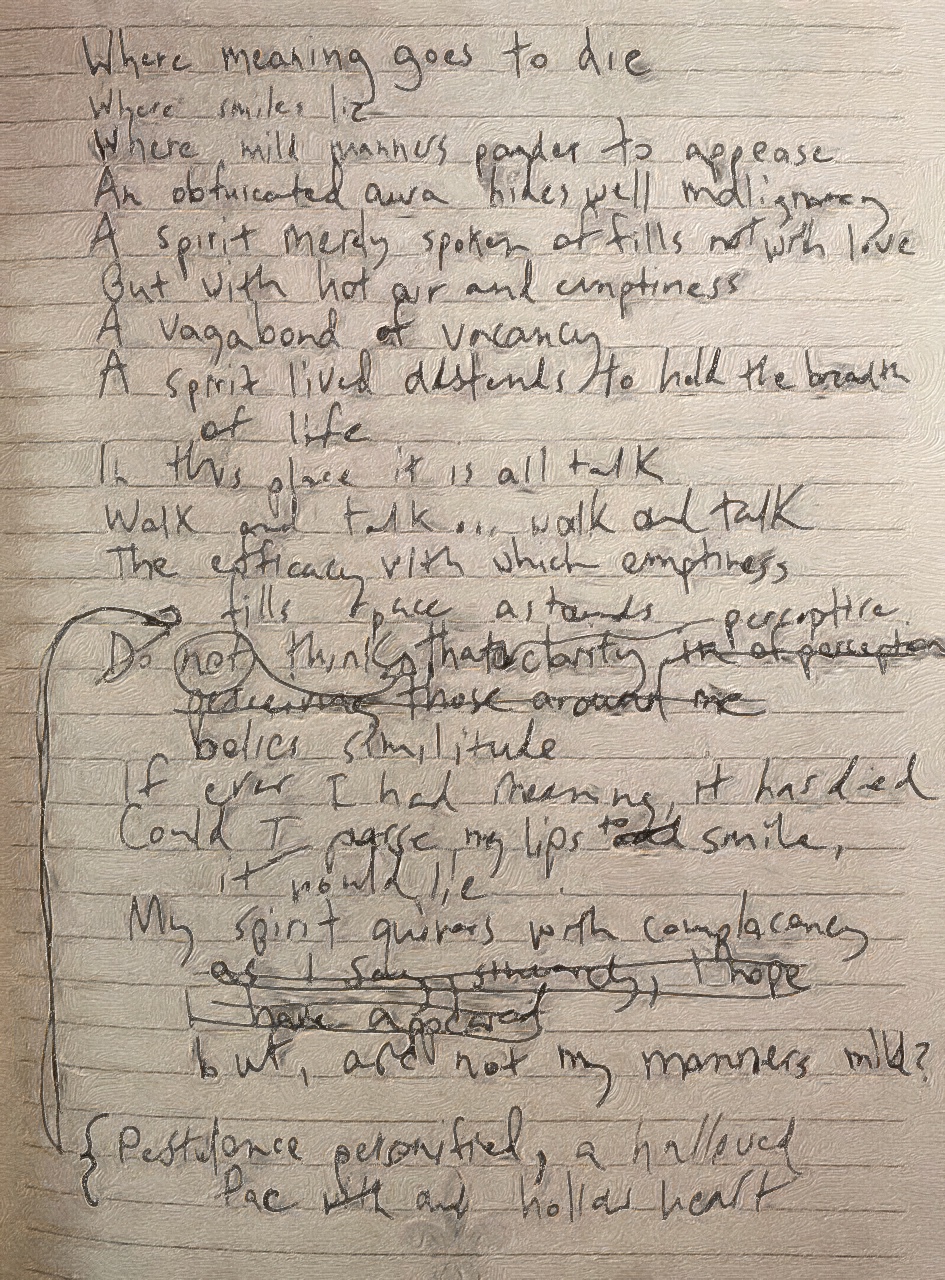 Where meaning goes to die
Where smiles lie
Where mild manners pander to appease
An obfuscated aura hides well malignancy
A spirit merely spoken of fills not with love
But with hot air and emptiness
A vagabond of vacancy
A spirit lived distends to hold the breadth
of life
In this place it is all talk
Walk and talk... walk and talk
The efficacy with which emptiness
fills space astounds
perceptive
Do not think that clarity of perception
those around me
belies similitude
If ever I had meaning, it has died
Could I parse my lips to smile,
it would lie
My spirit quivers with complacency
as I say, sincerely, I hope
I have appeared
but, are not my manners mild?
Pestulance personified, a hallowed
Pac with and hollow heart